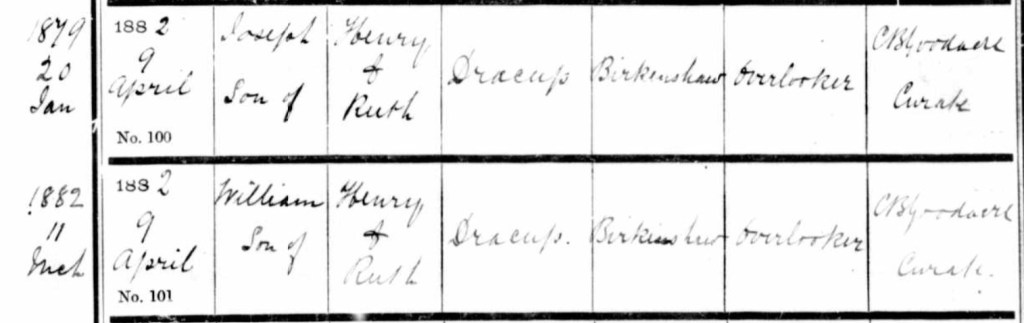 1879
20
Jan
1882
9
April
No. 100
Joseph
Son of
Henry
&
Ruth
Dracup
Birkenshaw
Overlooker
Curate
1882
11
Mch
1882
9
April
No. 101
William
Son of
Henry
&
Ruth
Dracup.
Birkinshaw
Overlooker
Curate.